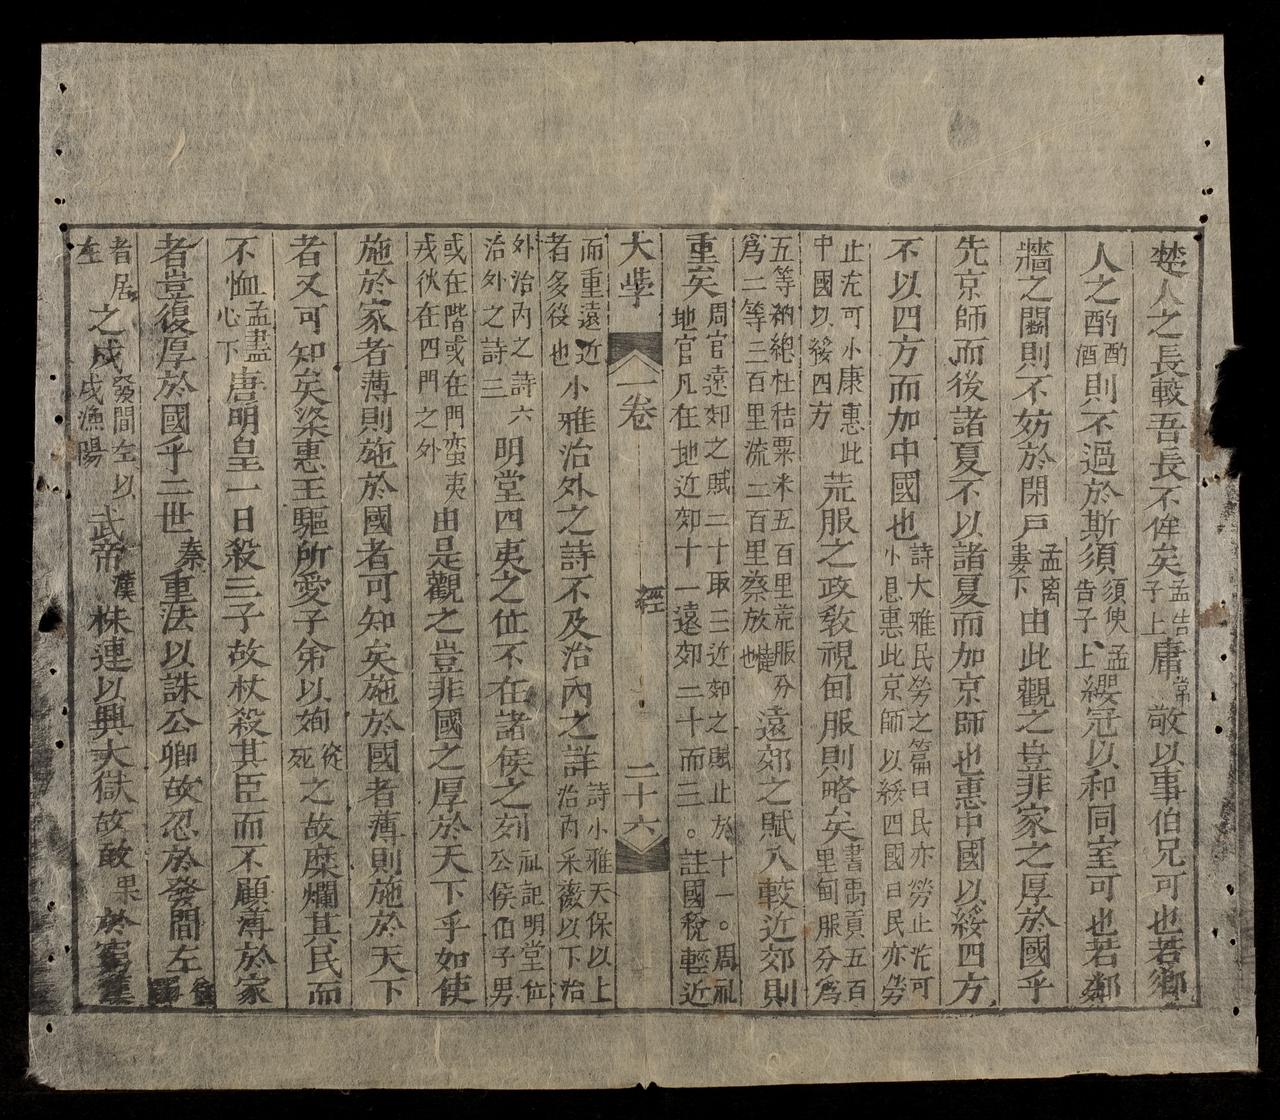 楚人之長較吾長不侔矣孟告子上庸常敬以事伯兄可也若鄉
人之酌酌酒則不過於斯須須臾孟告子上纓冠以和同室可也若鄰
牆之鬪則不妨於閉戸孟离婁下由此觀之豈非家之厚於國乎
先京師而後諸夏不以諸夏而加京師也惠中國以綏四方
不以四方而加中國也詩大雅民勞之篇曰民亦勞止汔可小息惠此京師以綏四國曰民亦勞
止汔可小康惠此中國以綏四方荒服之政教視甸服則略矣書禹貢五百里甸服分爲
五等納緫杜秸粟米五百里荒服分爲二等三百里流二百里蔡放也遠郊之賦入較近郊則
重矣周官遠郊之賦二十取三近郊之賦止於十一。周礼地官凡任地近郊十一遠郊二十而三。註國稅輕近
大學 一卷 經 二十六
而重遠近者多役也小雅治外之詩不及治內之詳詩小雅天保以上治內采薇以下治
外治內之詩六治外之詩三明堂四夷之位不在諸侯之列礼記明堂位公侯伯子男
或在階或在門蛮夷戎狄在四門之外由是觀之豈非國之厚於天下乎如使
施於家者薄則施於國者可知矣施於國者薄則施於天下
者又可知矣梁惠王驅所愛子弟以殉從死之故糜爛其民而
不恤孟盡心下唐明皇一日殺三子故杖殺其臣而不顧薄於家
者豈復厚於國乎二世秦重法以誅公卿故忍於發閭左
者居左之戍發閭左以戍漁陽武帝漢株連以興大獄故敢果於窮